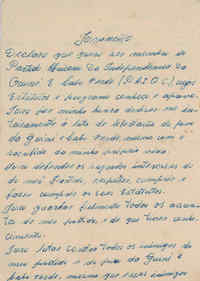 Juramento
Declaro que quero ser membro do
Partido Africano da Independência da
Guiné e Cabo Verde (P.A.I.G.C.) cujos
Estatutos e programa conheço e aprovo.
Juro por minha honra dedicar-me
à luta de libertação do povo
da Guiné e Cabo Verde, mesmo com o
sacrifício da minha própria vida.
Juro defender os sagrados interesses do
do meu Partido, respeitar, cumprir e
fazer cumprir os seus Estatutos.
Juro guardar fielmente todos os
do meu partido, e de que tiver conhe-
cimento.
Juro lutar contra todos os inimigos do
meu partido e do povo da Guiné e
Cabo Verde, mesmo que esses inimigos